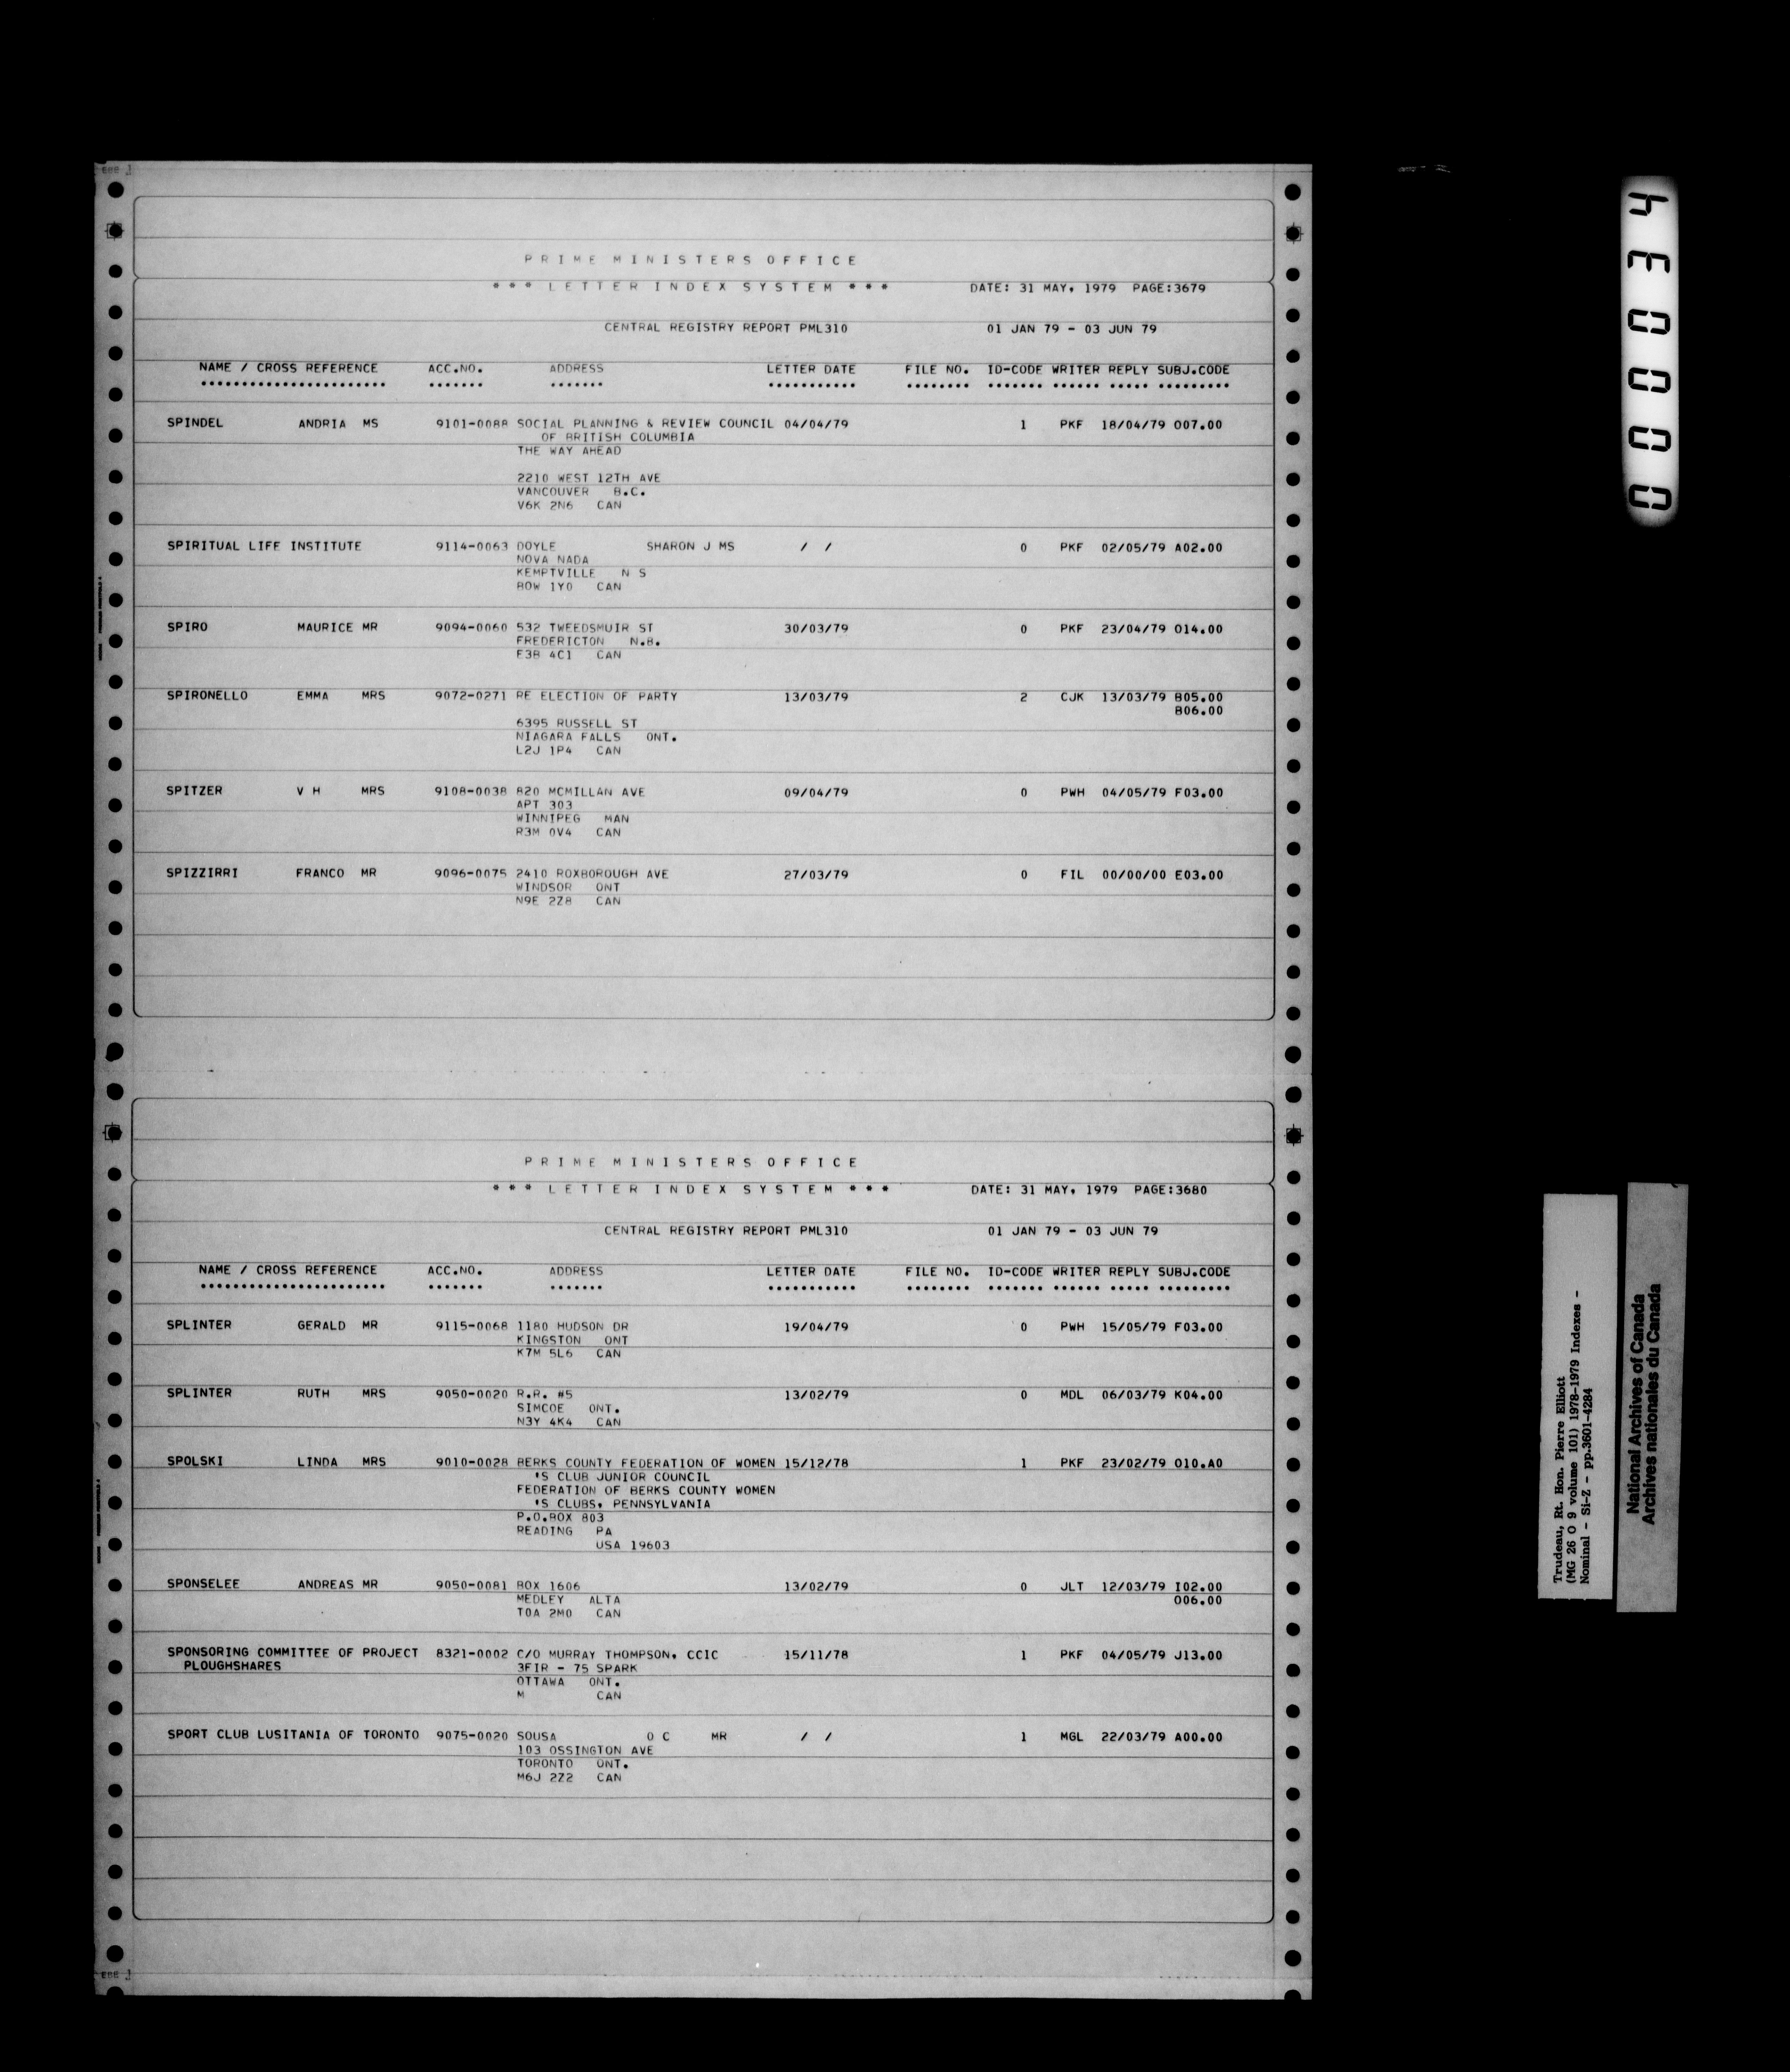 P R I M E  M I N I S T E R S  O F F I C E
* * *  L E T T E R  I N D E X  S Y S T E M  * * *  DATE: 31 MAY, 1979  PAGE:3679
CENTRAL REGISTRY REPORT PML310  01 JAN 79 - 03 JUN 79
NAME / CROSS REFERENCE  ACC.NO.  ADDRESS  LETTER DATE  FILE NO.  ID-CODE WRITER REPLY SUBJ.CODE
SPINDEL  ANDRIA  MS  9101-0088 SOCIAL PLANNING & REVIEW COUNCIL 04/04/79  1  PKF  18/04/79 O07.00
OF BRITISH COLUMBIA
THE WAY AHEAD
2210 WEST 12TH AVE
VANCOUVER  B.C.
V6K 2N6  CAN
SPIRITUAL LIFE INSTITUTE  9114-0063 DOYLE  SHARON J MS  /  /  0  PKF  02/05/79 A02.00
NOVA NADA
KEMPTVILLE  N S
BOW 1Y0  CAN
SPIRO  MAURICE MR  9094-0060 532 TWEEDSMUIR ST  30/03/79  0  PKF  23/04/79 O14.00
FREDERICTON  N.B.
E3B 4C1  CAN
SPIRONELLO  EMMA  MRS  9072-0271 RE ELECTION OF PARTY  13/03/79  2  CJK  13/03/79 B05.00
B06.00
6395 RUSSELL ST
NIAGARA FALLS  ONT.
L2J 1P4  CAN
SPITZER  V H  MRS  9108-0038 820 MCMILLAN AVE  09/04/79  0  PWH  04/05/79 F03.00
APT 303
WINNIPEG  MAN
R3M 0V4  CAN
SPIZZIRRI  FRANCO  MR  9096-0075 2410 ROXBOROUGH AVE  27/03/79  0  FIL  00/00/00 E03.00
WINDSOR  ONT
N9E 2Z8  CAN
P R I M E  M I N I S T E R S  O F F I C E
* * *  L E T T E R  I N D E X  S Y S T E M  * * *  DATE: 31 MAY, 1979  PAGE:3680
CENTRAL REGISTRY REPORT PML310  01 JAN 79 - 03 JUN 79
NAME / CROSS REFERENCE  ACC.NO.  ADDRESS  LETTER DATE  FILE NO.  ID-CODE WRITER REPLY SUBJ.CODE
SPLINTER  GERALD  MR  9115-0068 1180 HUDSON DR  19/04/79  0  PWH  15/05/79 F03.00
KINGSTON  ONT
K7M 5L6  CAN
SPLINTER  RUTH  MRS  9050-0020 R.R. #5  13/02/79  0  MDL  06/03/79 K04.00
SIMCOE  ONT.
N3Y 4K4  CAN
SPOLSKI  LINDA  MRS  9010-0028 BERKS COUNTY FEDERATION OF WOMEN 15/12/78  1  PKF  23/02/79 O10.A0
'S CLUB JUNIOR COUNCIL
FEDERATION OF BERKS COUNTY WOMEN
'S CLUBS, PENNSYLVANIA
P.O.BOX 803
READING  PA
USA 19603
SPONSELEE  ANDREAS MR  9050-0081 BOX 1606  13/02/79  0  JLT  12/03/79 I02.00
MEDLEY  ALTA  O06.00
T0A 2M0  CAN
SPONSORING COMMITTEE OF PROJECT  8321-0002 C/O MURRAY THOMPSON, CCIC  15/11/78  1  PKF  04/05/79 J13.00
PLOUGHSHARES  3FIR - 75 SPARK
OTTAWA  ONT.
M  CAN
SPORT CLUB LUSITANIA OF TORONTO  9075-0020 SOUSA  O C  MR  /  /  1  MGL  22/03/79 A00.00
103 OSSINGTON AVE
TORONTO  ONT.
M6J 2Z2  CAN
000034
Trudeau, Rt. Hon. Pierre Elliott
(MG 26 O 9 volume 101) 1978-1979 Indexes -
Nominal - Si-Z - pp.3601-4284
National Archives of Canada
Archives nationales du Canada